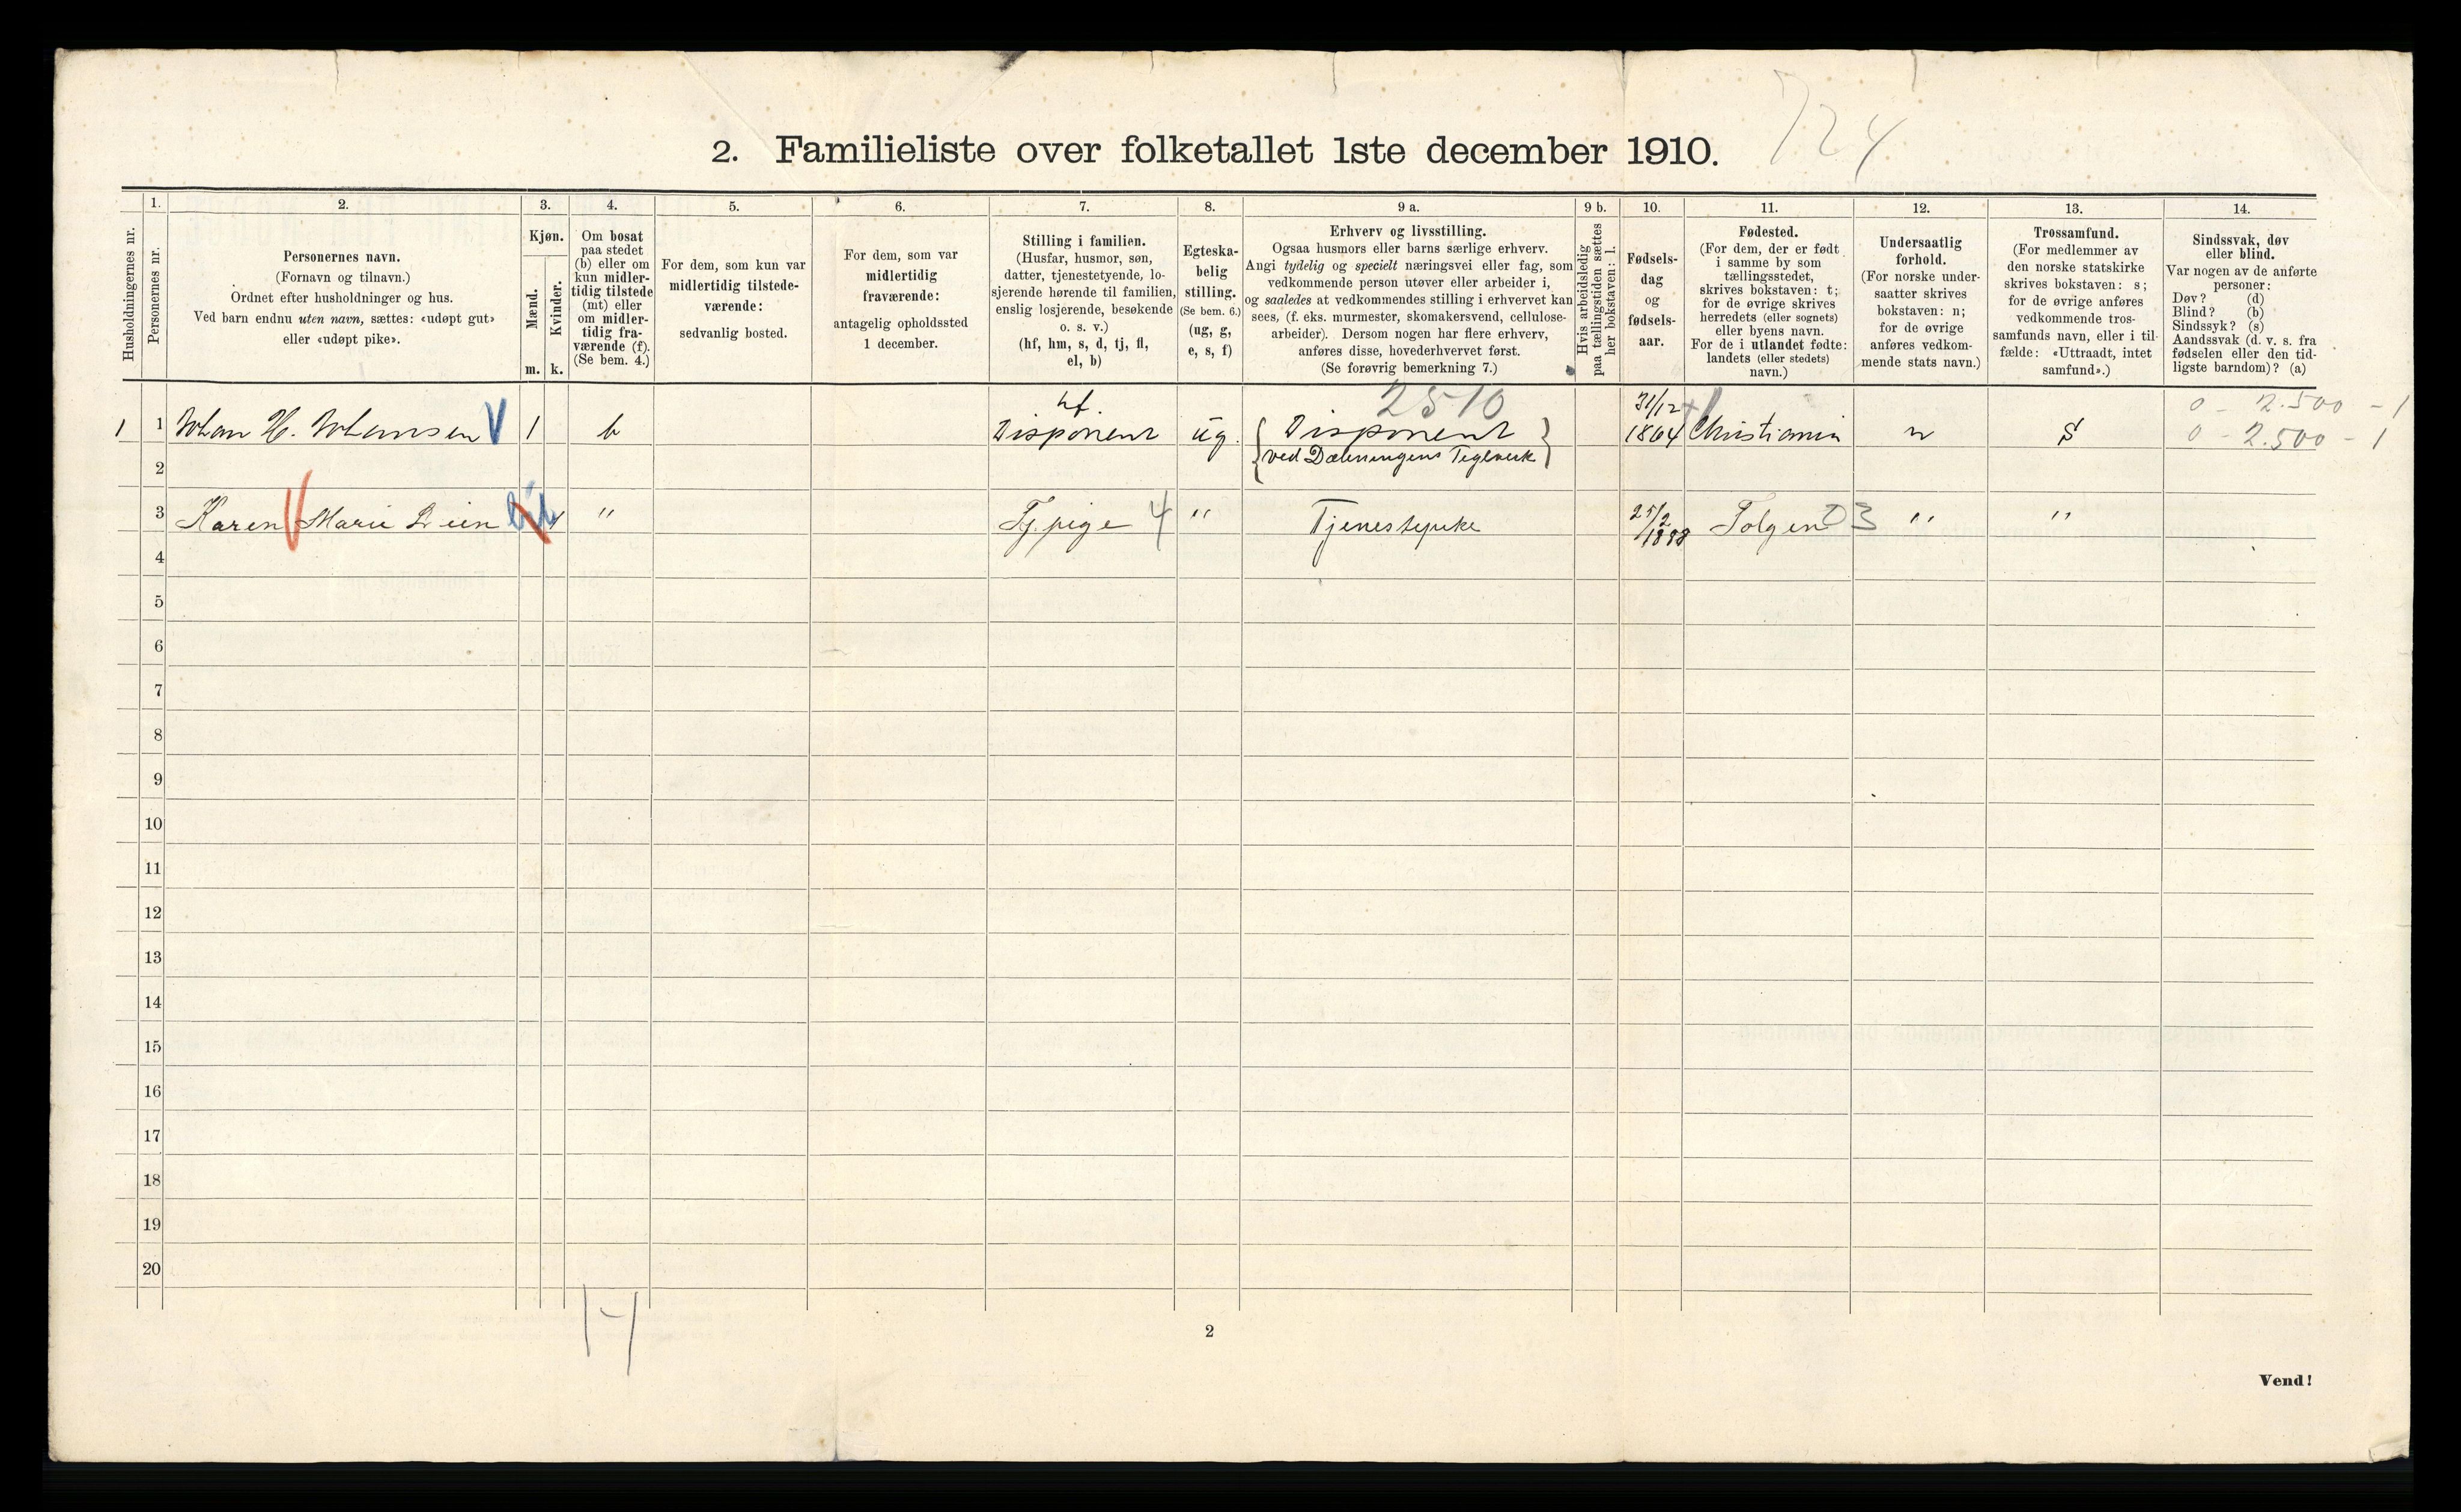 724
2. Familieliste over folketallet 1ste december 1910.
Husholdningernes nr.
1.
Personernes nr.
2.
Personernes navn.
(Fornavn og tilnavn.)
Ordnet efter husholdninger og hus.
Ved barn endnu uten navn, sættes: «udøpt gut»
eller «udøpt pike».
3.
Kjøn.
Mænd.
Kvinder.
m. k.
4.
Om bosat
paa stedet
(b) eller om
kun midler-
tidig tilstede
(mt) eller
om midler-
tidig fra-
værende (f).
(Se bem. 4.)
5.
For dem, som kun var
midlertidig tilstede-
værende:
sedvanlig bosted.
6.
For dem, som var
midlertidig
fraværende:
antagelig opholdssted
1 december.
7.
Stilling i familien.
(Husfar, husmor, søn,
datter, tjenestetyende, lo-
sjerende hørende til familien,
enslig losjerende, besøkende
o. s. v.)
(hf, hm, s, d, tj, fl,
el, b)
8.
Egteska-
belig
stilling.
(Se bem. 6.)
(ug, g,
e, s, f)
9 a.
Erhverv og livsstilling.
Ogsaa husmors eller barns særlige erhverv.
Angi tydelig og specielt næringsvei eller fag, som
vedkommende person utøver eller arbeider i,
og saaledes at vedkommendes stilling i erhvervet kan
sees, (f. eks. murmester, skomakersvend, cellulose-
arbeider). Dersom nogen har flere erhverv,
anføres disse, hovederhvervet først.
(Se forøvrig bemerkning 7.)
9 b.
Hvis arbeidsledig
paa tællingstiden sættes
her bokstaven: l.
10.
Fødsels-
dag
og
fødsels-
aar.
11.
Fødested.
(For dem, der er født
i samme by som
tællingsstedet,
skrives bokstaven: t;
for de øvrige skrives
herredets (eller sognets)
eller byens navn.
For de i utlandet fødte:
landets (eller stedets)
navn.)
12.
Undersaatlig
forhold.
(For norske under-
saatter skrives
bokstaven: n;
for de øvrige
anføres vedkom-
mende stats navn.)
13.
Trossamfund.
(For medlemmer av
den norske statskirke
skrives bokstaven: s;
for de øvrige anføres
vedkommende tros-
samfunds navn, eller i til-
fælde: «Uttraadt, intet
samfund».)
14.
Sindssvak, døv
eller blind.
Var nogen av de anførte
personer:
Døv? (d)
Blind? (b)
Sindssyk? (s)
Aandssvak (d. v. s. fra
fødselen eller den tid-
ligste barndom)? (a)
hf. 2510 31/12 0 - 2.500 - 1
1 1 Johan H. Johansen 1 b Disponent ug. Disponent 1864 Christiania n S 0 - 2.500 - 1
ved Dælenengens Teglverk
2
3 Karen Marie Lien 1 " Tj. pige 4 " Tjenestepike 25/2 1888 Tolgen 03 " "
4
5
6
7
8
9
10
11
12
13
14
15
16
17
18
19
20
1-1
2
Vend!